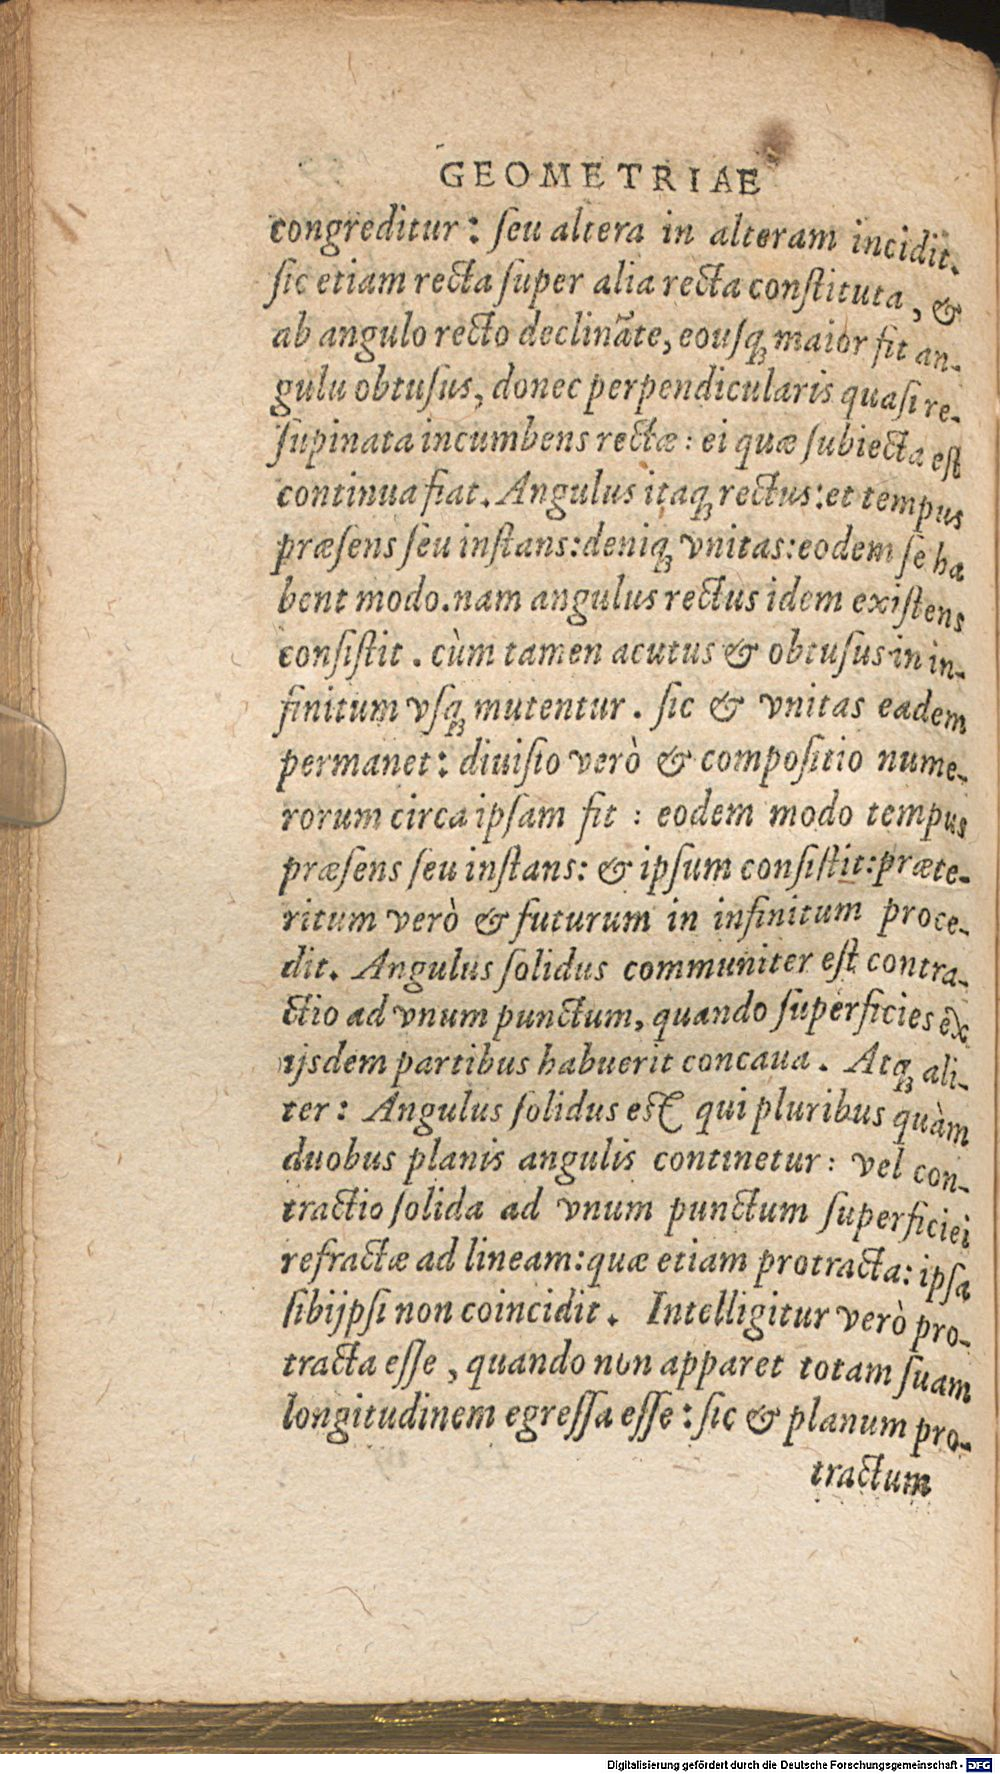 GEOMETRIAE
congreditur: ſeu altera in alteram incidit.
ſic etiam recta ſuper alia recta conſtituta, &
ab angulo recto declinãte, eouſq; maior fit an-
gulu obtuſus, donec perpendicularis quaſi re-
ſupinata incumbens rectæ: ei quæ ſubiecta eſt
continua fiat. Angulus itaq; rectus: et tempus
præſens ſeu inſtans: deniq; vnitas: eodem ſe ha
bent modo. nam angulus rectus idem exiſtens
conſiſtit. cùm tamen acutus & obtuſus in in-
finitum vſq; mutentur. ſic & vnitas eadem
permanet: diuiſio verò & compoſitio nume-
rorum circa ipſam fit: eodem modo tempus
præſens ſeu inſtans: & ipſum conſiſtit: præte-
ritum verò & futurum in infinitum proce-
dit. Angulus ſolidus communiter eſt contra-
ctio ad vnum punctum, quando ſuperficies ex
ijsdem partibus habuerit concaua. Atq; ali-
ter: Angulus ſolidus est qui pluribus quàm
duobus planis angulis continetur: vel con-
tractio ſolida ad vnum punctum ſuperficiei
refractæ ad lineam: quæ etiam protracta: ipſa
ſibijpſi non coincidit. Intelligitur verò pro-
tracta eſſe, quando non apparet totam ſuam
longitudinem egreſſa eſſe: ſic & planum pro-
tractum
Digitalisierung gefördert durch die Deutsche Forschungsgemeinschaft - DFG